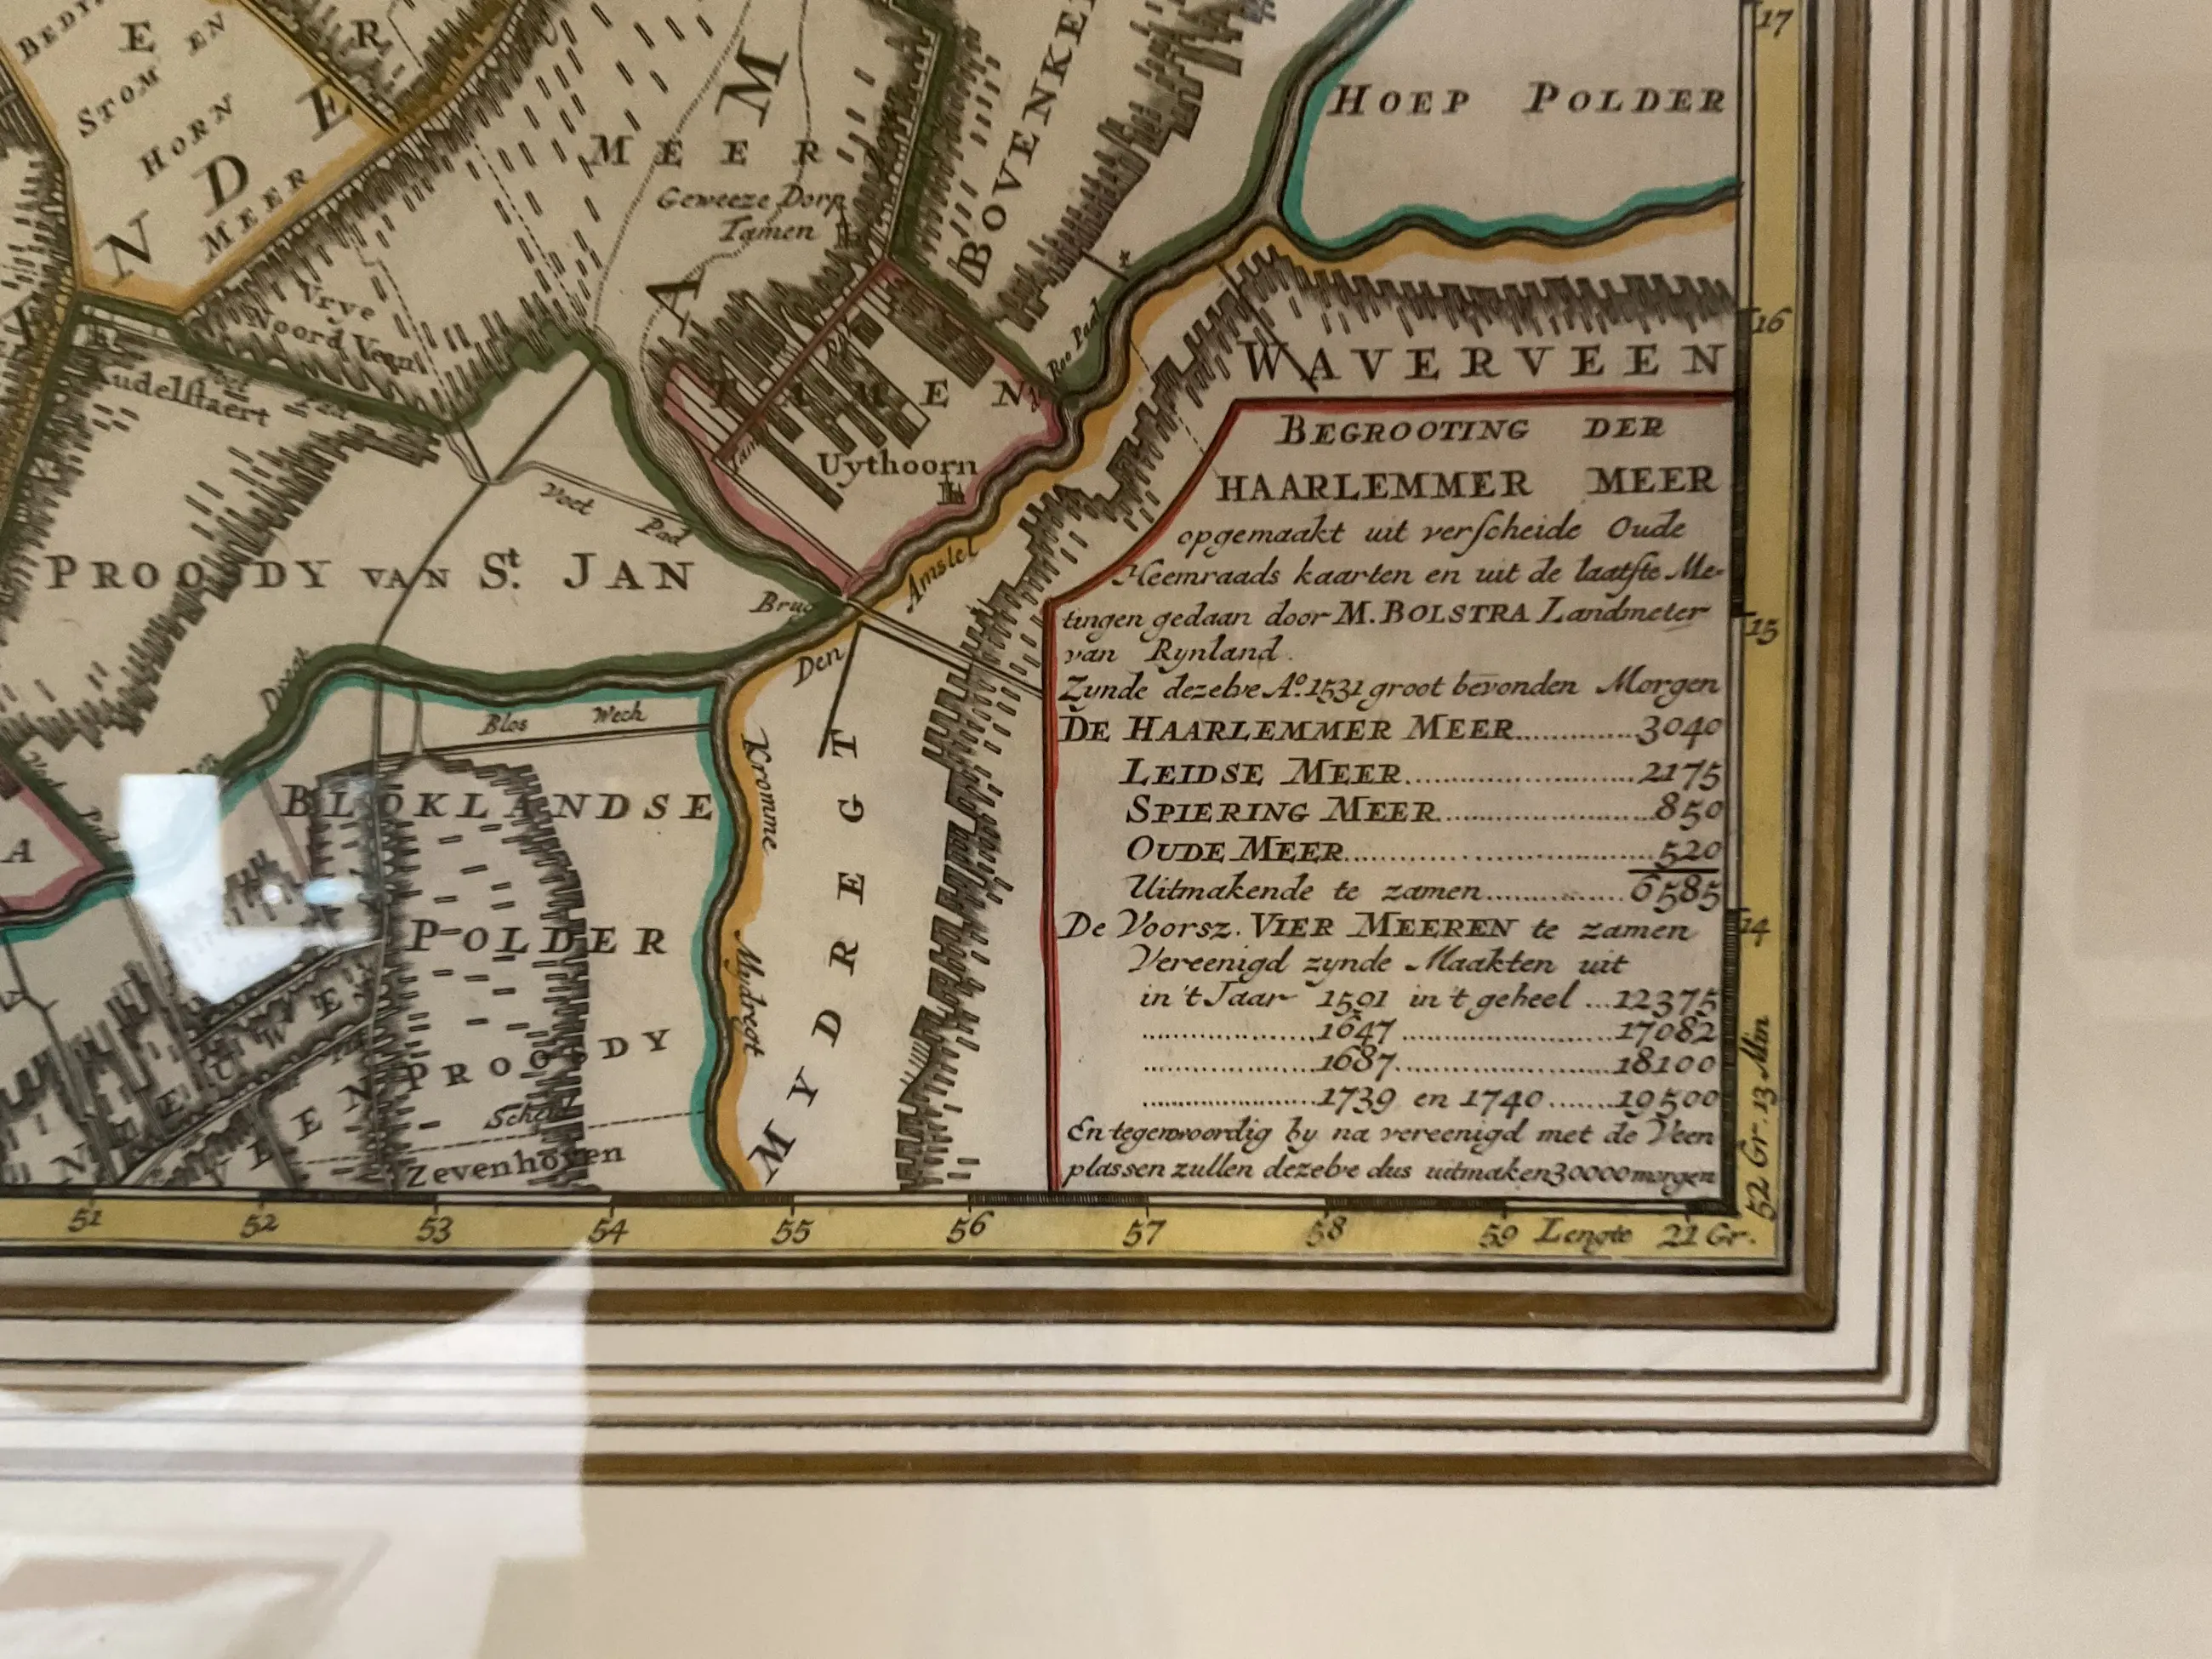 BEDY
E EN
STOM
HORN
MEER
N D E R
M
MEER
A
Geweeze Dorp
Tamen
BOVENKE
HOEP POLDER
17
16
15
14
52 Gr. 13 Min
WAVERVEEN
Vrye
Noord Veen
Kudelstaert
Voet Pad
Roo Paal
TAMEN
Uythoorn
Voet Pad
PROOSDY VAN St. JAN
Brug
Amstel
Den
Drecht
Den
Blos Wech
BLOKLANDSE
POLDER
Kromme
Mydregt
MYDREGT
A
PROOSDY
Zevenhoven
BEGROOTING DER
HAARLEMMER MEER
opgemaakt uit verſcheide Oude
Heemraads kaarten en uit de laatſte Me-
tingen gedaan door M. BOLSTRA Landmeter
van Rynland.
Zynde dezelve Ao. 1531 groot bevonden Morgen
DE HAARLEMMER MEER..............3040
LEIDSE MEER..........................2175
SPIERING MEER........................850
OUDE MEER..............................520
Uitmakende te zamen................6585
De Voorsz. VIER MEEREN te zamen
Vereenigd zynde Maakten uit
in 't Jaar 1591 in 't geheel ...12375
....................1647......................17082
....................1687......................18100
....................1739 en 1740.......19500
En tegenwoordig by na vereenigd met de Veen
plassen zullen dezelve dus uitmaken 30000 morgen
51 52 53 54 55 56 57 58 59 Lengte 21 Gr.